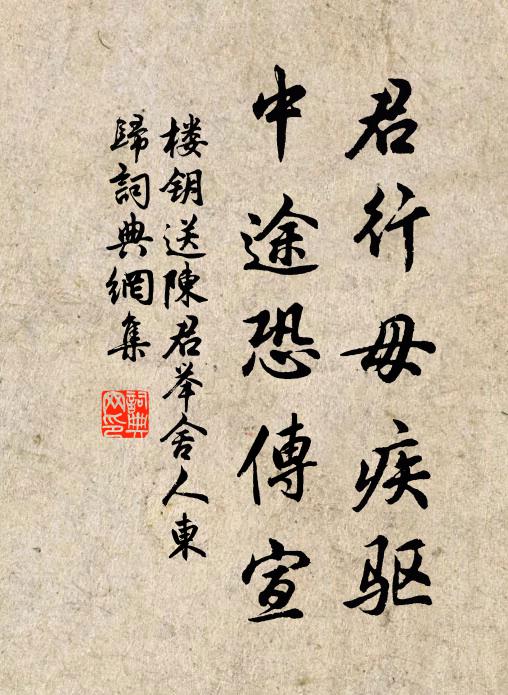 君行毋疾驱
中途恐傳宣
楼钥送陳君举舍人東
歸詞典網集
詞典
网印